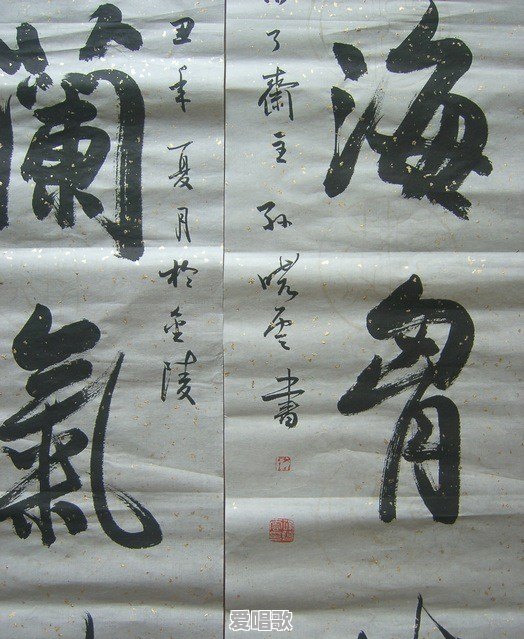 海胷
了齋主孫曉雲書
丑年夏月於金陵
蘭氣
爱唱歌